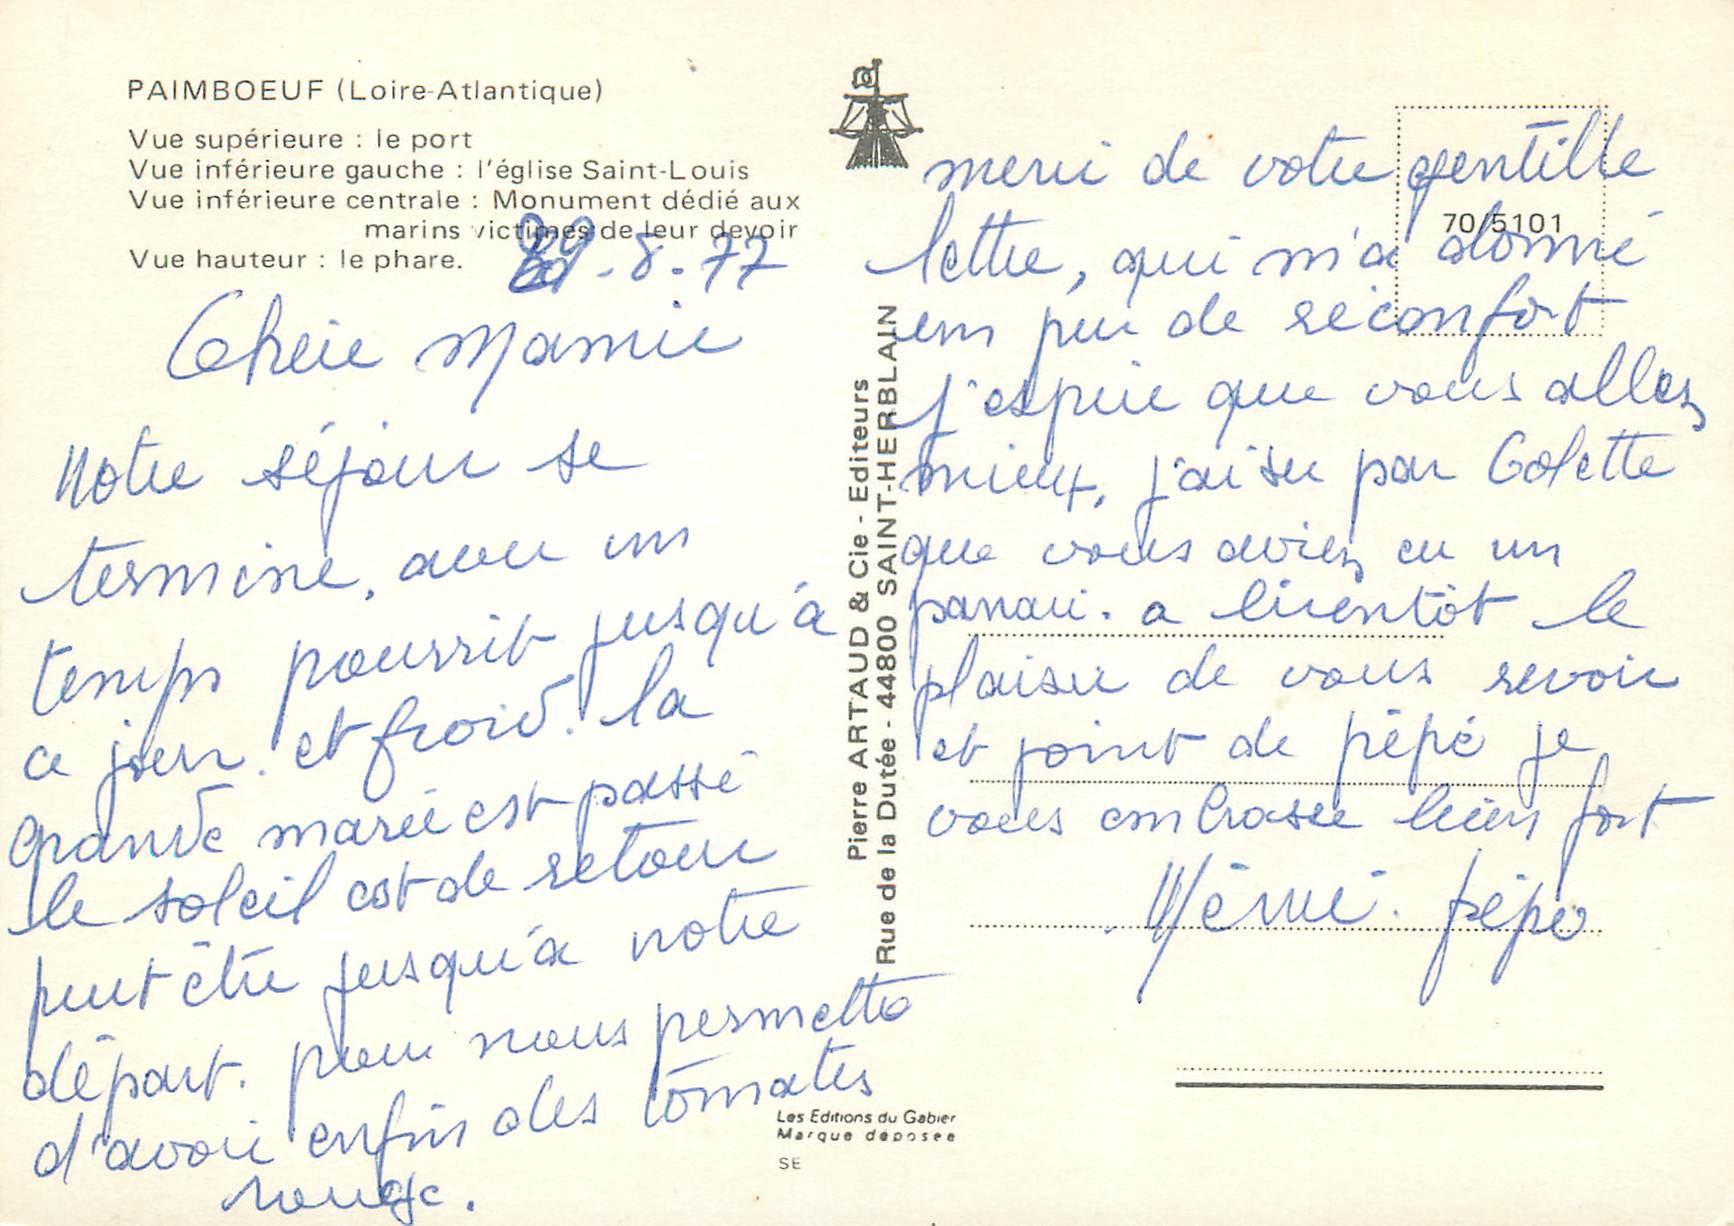 PAIMBOEUF (Loire-Atlantique)
Vue supérieure : le port
Vue inférieure gauche : l'église Saint-Louis
Vue inférieure centrale : Monument dédié aux
marins victimes de leur devoir
Vue hauteur : le phare.
29.8.77
Cherie Mamie
Notre séjour se
termine, avec un
temps pourrit jusqu'à
ce jour. et froid. la
grande marée est passé
le soleil est de retour
peut être jusqu'à notre
départ. pour nous permettre
d'avoir enfin des tomates
rouge.
Pierre ARTAUD & Cie - Editeurs
Rue de la Dutée - 44800 SAINT-HERBLAIN
Les Editions du Gabier
Marque déposée
SE
70/5101
merci de votre gentille
lettre, qui m'a donné
un peu de réconfort
j'espère que vous allez
mieux, j'ai su par Colette
que vous aviez eu un
panari. a bientôt le
plaisir de vous revoir
et joint de pépé je
vous embrasse bien fort
Mémé. pépé